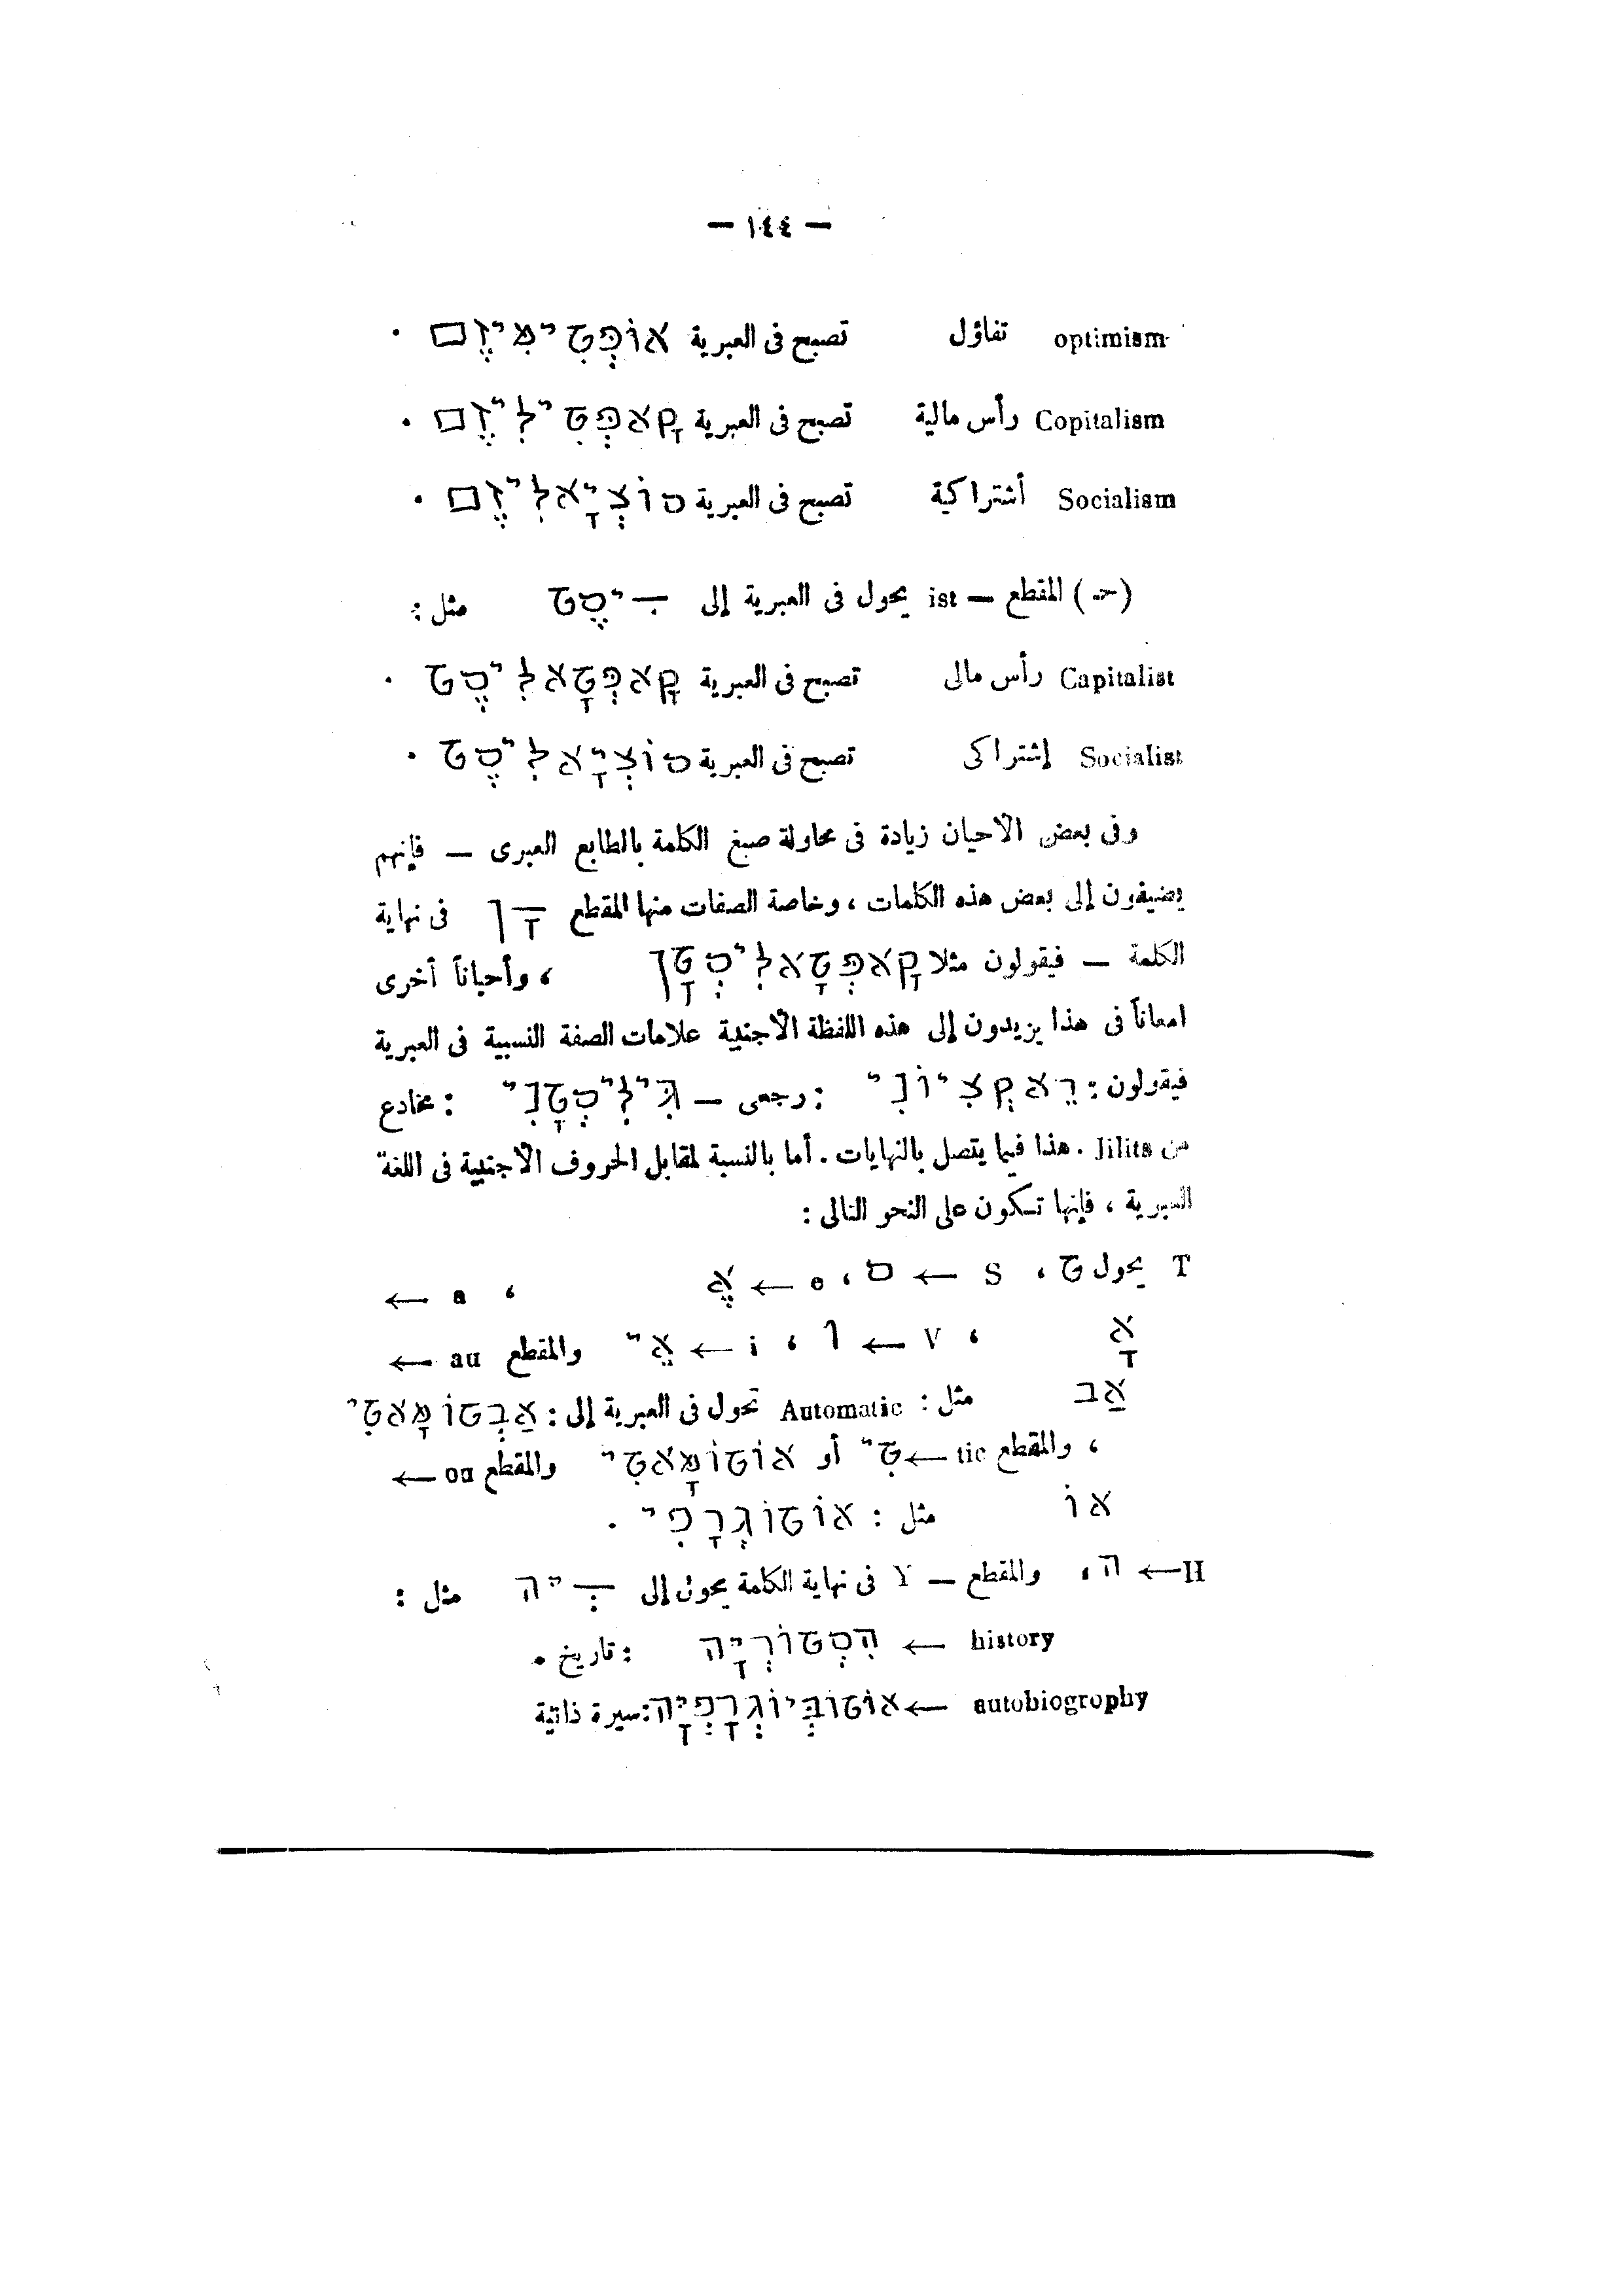 — ١٤٤ —
optimism تفاؤل تصبح فى العبرية אוֹפְּטִימִיזְם .
Copitalism رأس مالية تصبح فى العبرية קָאפְּטִילִיזְם .
Socialism أشتراكية تصبح فى العبرية סוֹצְיָאלִיזְם .
(حـ) المقطع — ist يحول فى العبرية إلى ִיסְט مثل :
Capitalist رأس مالى تصبح فى العبرية קָאפְּטָאלִיסְט .
Socialist إشتراكى تصبح فى العبرية סוֹצְיָאלִיסְט .
وفى بعض الأحيان زيادة فى محاولة صبغ الكلمة بالطابع العبرى — فإنهم
يضيفون إلى بعض هذه الكلمات ، وخاصة الصفات منها المقطع ָן فى نهاية
الكلمة — فيقولون مثلا קָאפְּטָאלִיסְטָן ، وأحياناً أخرى
امعاناً فى هذا يزيدون إلى هذه اللفظة الأجنبية علامات الصفة النسبية فى العبرية
فيقولون : רֵאקְצִיוֹנִי : رجعى — גִּילִיסְטָנִי : مخادع
من Jilits . هذا فيما يتصل بالنهايات . أما بالنسبة لمقابل الحروف الأجنبية فى اللغة
العبرية ، فإنها تكون على النحو التالى :
T يحول ט ، S ← ס ، e ← אֶ ، a ←
אָ ، V ← ו ، i ← אִי والمقطع au ←
אַב مثل : Automatic تحول فى العبرية إلى : אַבְטוֹמָאטִי
، والمقطع tic ← טִי أو אוֹטוֹמָאטִי والمقطع ou ←
אוֹ مثل : אוֹטוֹגְרָפִי .
H ← ה ، والمقطع — Y فى نهاية الكلمة يحول إلى ְיה مثل :
history ← הִסְטוֹרְיָה : تاريخ .
autobiogrophy ← אוֹטוֹבְּיוֹגְרָפְיָה : سيرة ذاتية